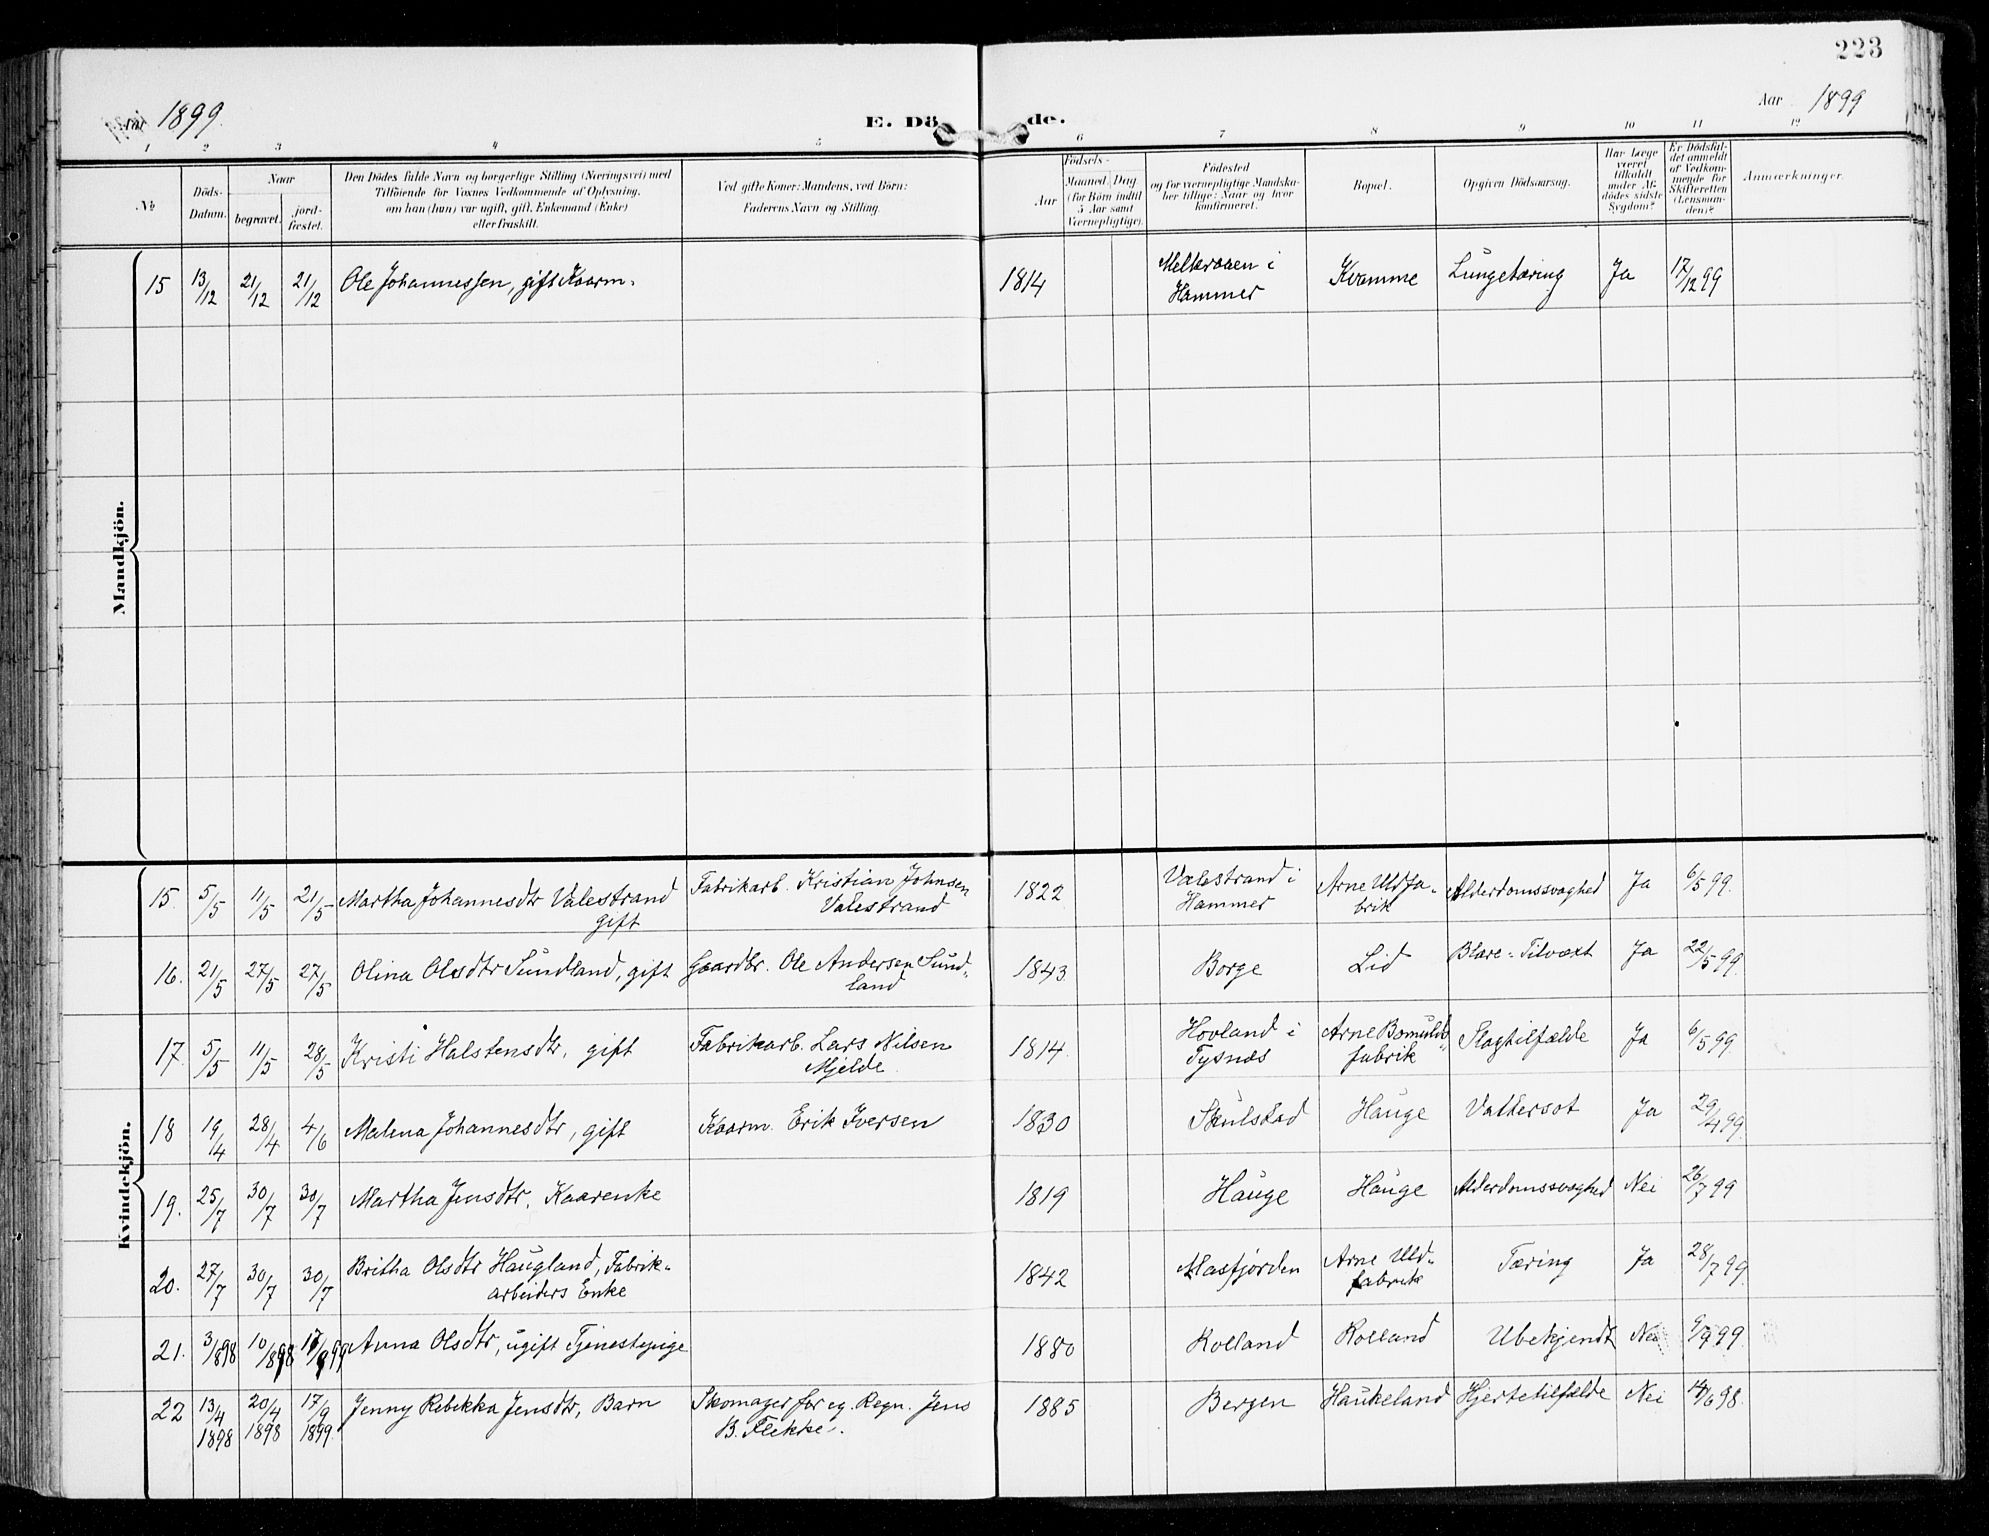 223
Aar 1899.
E. Dö de.
Aar 1899
1 2 3 4 5 6 7 8 9 10 11 12
№
Döds-Datum.
Naar
begravet.
jord-fæstet.
Den Dödes fulde Navn og borgerlige Stilling (Næringsvei) med
Tilföiende for Voxnes Vedkommende af Oplysning,
om han (hun) var ugift, gift, Enkemand (Enke)
eller fraskilt.
Ved gifte Koner: Mandens, ved Börn:
Faderens Navn og Stilling.
Födsels-
Aar
Maaned. Dag
(for Börn indtil
5 Aar samt
Værnepligtige).
Födested
og for værnepligtige Mandska-
ber tillige: Naar og hvor
konfirmeret.
Bopæl.
Opgiven Dödsaarsag.
Har Læge
været
tilkaldt
under Af-
dödes sidste
Sygdom?
Er Dödsfal-
det anmeldt
af Vedkom-
mende for
Skifteretten
(Lensman-
den)?
Anmærkninger.
Mandkjön.
15 13/12 21/12 21/12 Ole Johannessen, gift Kaarm. 1814 Melkraaen i Kvamme Lungetæring Ja 17/12 99
Hammer
Kvindekjön.
15. 5/5 11/5 21/5 Martha Johannesdtr Valestrand Fabrikarb. Kristian Johnsen 1822 Valestrand i Arne Uldfa- Alderdomssvaghed Ja 6/5 99.
gift Valestrand Hammer brik
16. 21/5 27/5 27/5 Olina Olsdtr Sundland, gift Gaardbr. Ole Andersen Sund- 1843 Borge Lid Blære-Tilvæxt Ja 22/5 99.
land
17. 5/5 11/5 28/5 Kristi Halstensdtr, gift Fabrikarb. Lars Nilsen 1814 Hovland i Arne Bomulds- Slagtilfælde Ja 6/5 99.
Mjelde Tysnæs fabrik
18 19/4 28/4 4/6 Malena Johannesdtr, gift Kaarm. Erik Iversen 1830 Skulstad Hauge Vattersot Ja 29/4 99.
19. 25/7 30/7 30/7 Martha Jensdtr, Kaarenke 1819 Hauge Hauge Alderdomssvaghed Nei 26/7 99
20. 27/7 30/7 30/7 Britha Olsdtr Haugland, Fabrik- 1842 Masfjorden Arne Uld- Tæring Ja 28/7 99.
arbeiders Enke fabrik
21. 3/8 98 10/8 98 17/9 99 Anna Olsdtr, ugift Tjenestepige 1880 Rolland Rolland Ubekjendt Nei 9/9 99
22 13/4 20/4 17/9 Jenny Rebekka Jensdtr, Barn Skomager for eg. Regn. Jens 1885 Bergen Haukeland Hjertetilfælde Nei 14/6 98.
1898 1898 1899. B. Flekke.